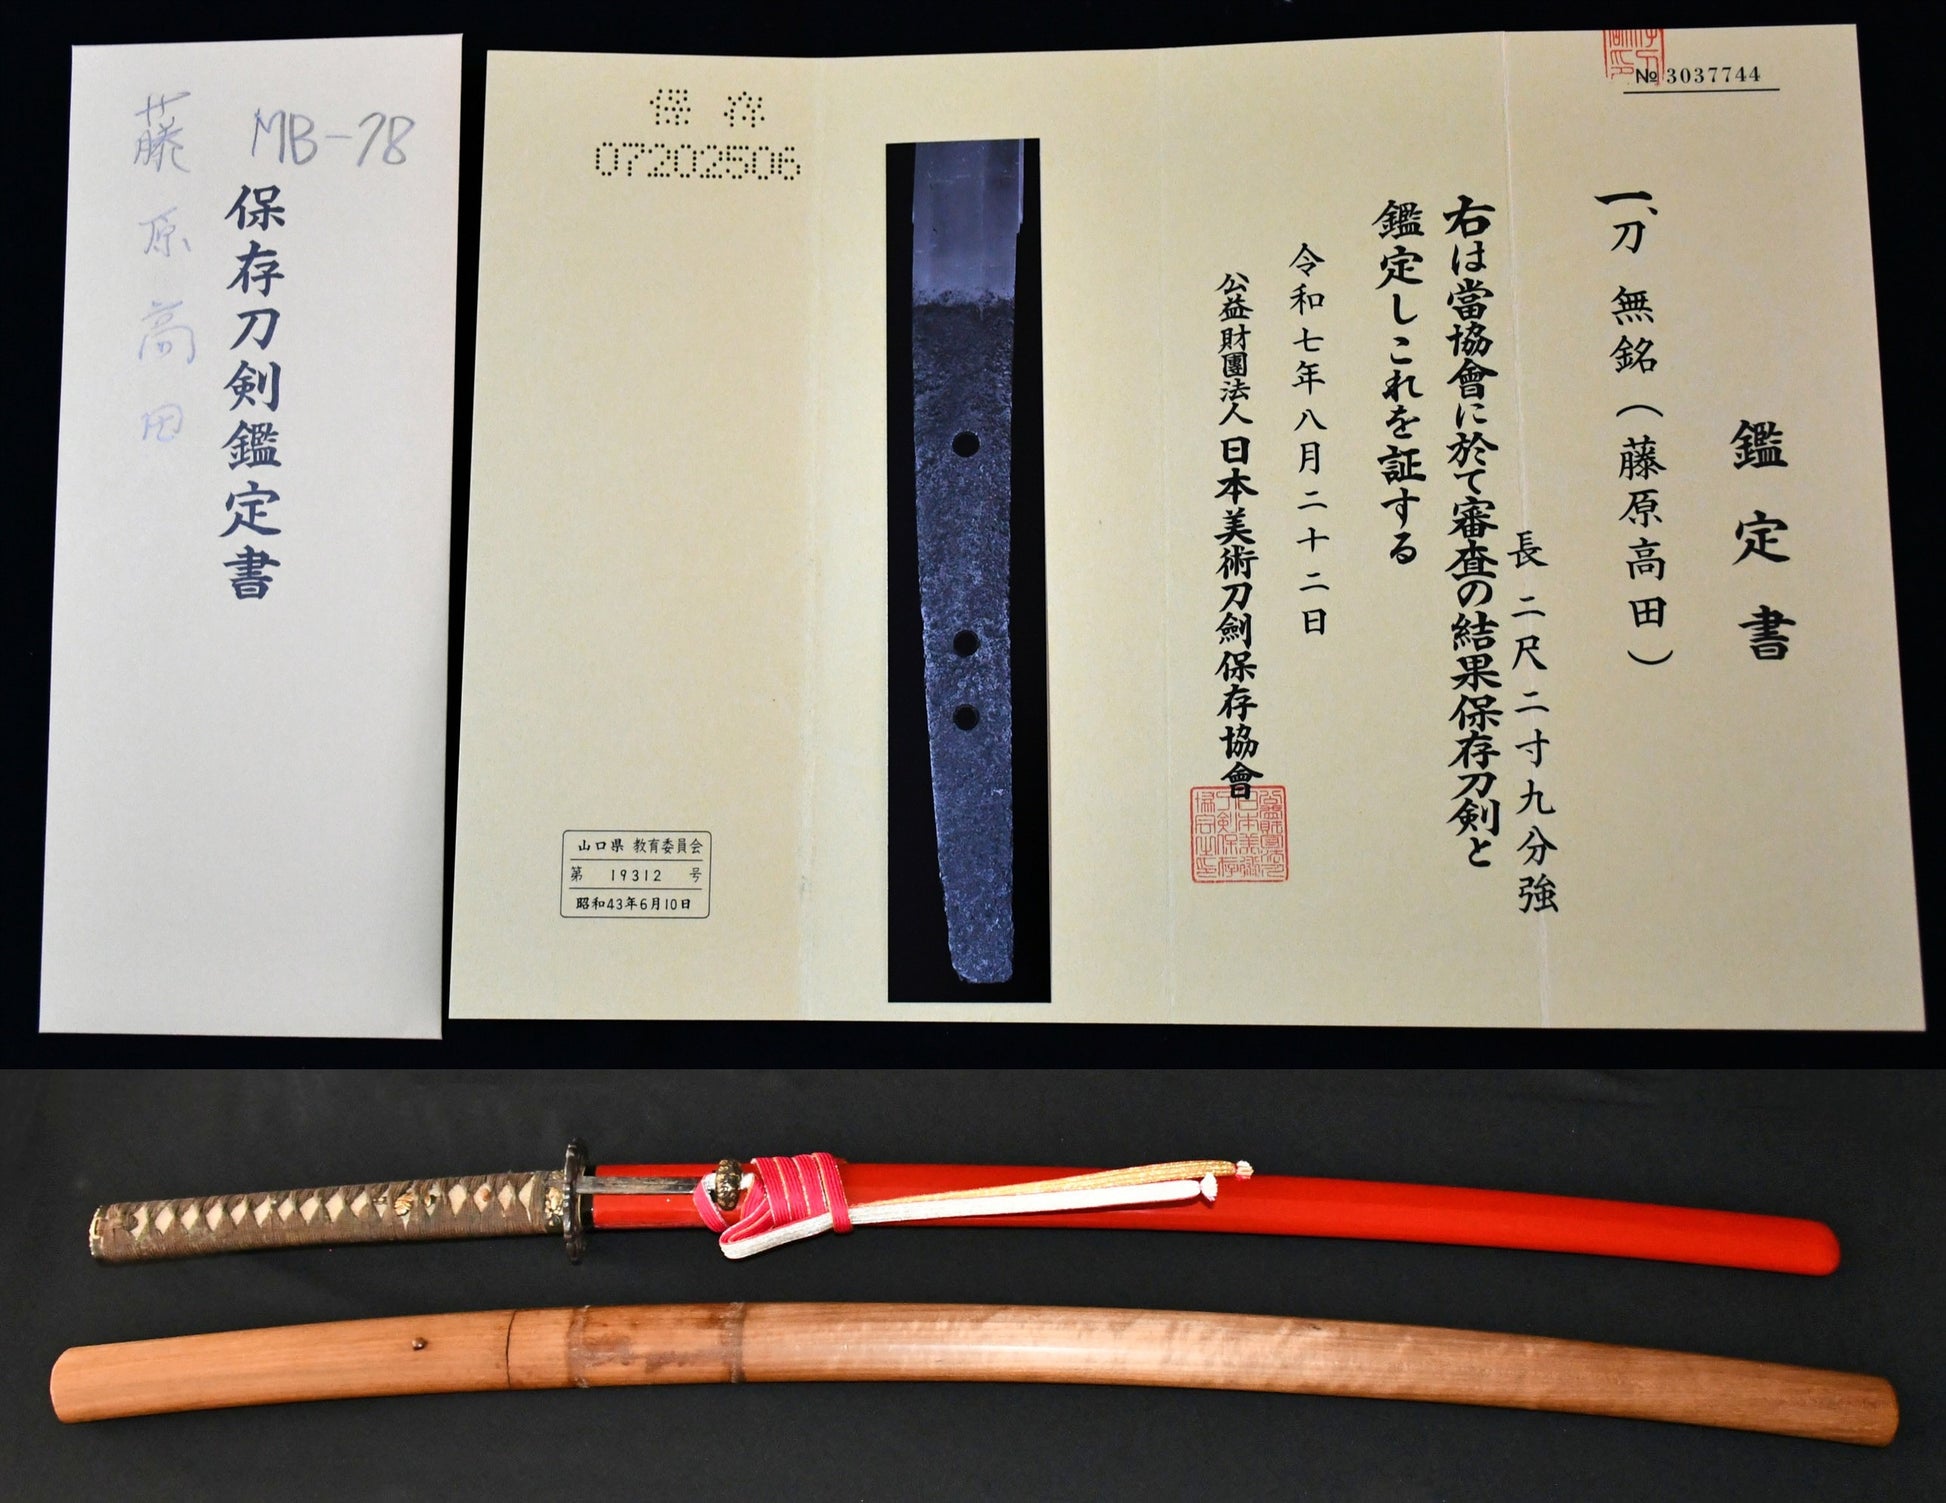 藤原高田
MB-78
保存刀剣鑑定書
保存
07202506
№ 3037744
鑑定書
一、刀 無銘（藤原高田）
長二尺二寸九分強
右は當協會に於て審査の結果保存刀剣と
鑑定しこれを証する
令和七年八月二十二日
公益財團法人日本美術刀劍保存協會
山口県 教育委員会
第 19312 号
昭和43年6月10日